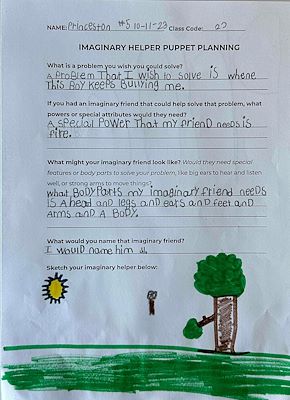 NAME: Princeston #5 10-11-23 Class Code: 22
IMAGINARY HELPER PUPPET PLANNING
What is a problem you wish you could solve?
A Problem That I wish to solve is where
This Boy Keeps Bullying me.
If you had an imaginary friend that could help solve that problem, what
powers or special attributes would they need?
A special Power That my frienD neeDs is
fire.
What might your imaginary friend look like? Would they need special
features or body parts to solve your problem, like big ears to hear and listen
well, or strong arms to move things?
What BoDy Parts my imaginary friend neeDs
is A head anD legs anD ears anD feet anD
Arms anD A BoDy.
What would you name that imaginary friend?
I woulD name him
Sketch your imaginary helper below: